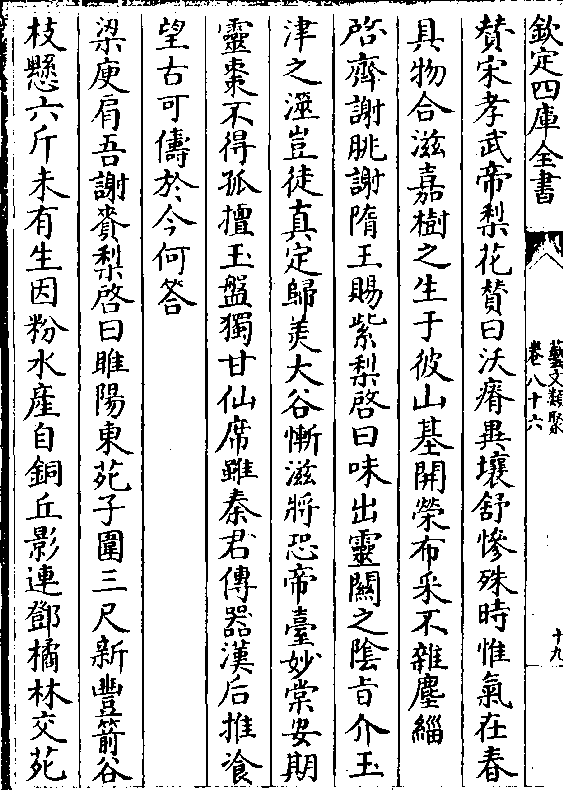 欽定四庫全書
藝文類聚
卷八十六
十九
贊宋孝武帝梨花贊曰沃瘠異壤舒慘殊時惟氣在春
具物合滋嘉樹之生于彼山基開榮布采不雜塵緇
啓齊謝朓謝隋王賜紫梨啓曰味出靈關之陰旨介玉
津之澨豈徒真定歸美大谷慚滋將恐帝臺妙棠安期
靈棗不得孤擅玉盤獨甘仙席雖秦君傳器漢后推飡
望古可儔於今何答
梁庾肩吾謝賚梨啓曰睢陽東苑子圍三尺新豐箭谷
枝懸六斤未有生因粉水產自銅丘影連鄧橘林交苑